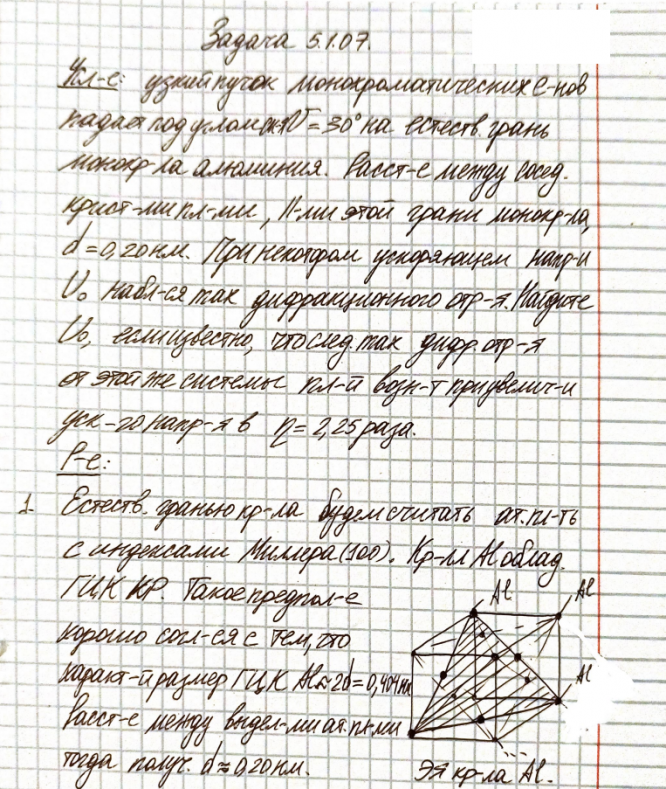 Задача 5.1.07.
Усл-е: узкий пучок монохроматических е-нов
падает под углом скол. ϑ = 30° на естеств. грань
монокр-ла алюминия. Расст-е между сосед.
крист-ми пл-ми, II-ми этой грани монокр-ла,
d = 0,20 нм. При некотором ускоряющем напр-и
U₀ набл-ся max дифракционного отр-я. Найдите
U₀, если известно, что след. max дифр. отр-я
от этой же системы пл-й возн-т при увелич-и
уск-го напр-я в η = 2,25 раза.
Р-е:
1. Естеств. гранью кр-ла будем считать ат. пл-ть
с индексами Миллера (100). Кр-лл Al облад.
ГЦК КР. Такое предпол-е
хорошо согл-ся с тем, что
характ-й размер ГЦК Al ≈ 2d = 0,404 нм
Расст-е между выдел-ми ат. пл-ми
тогда получ. d ≈ 0,20 нм.
Al
Al
Al
ЭЯ кр-ла Al.